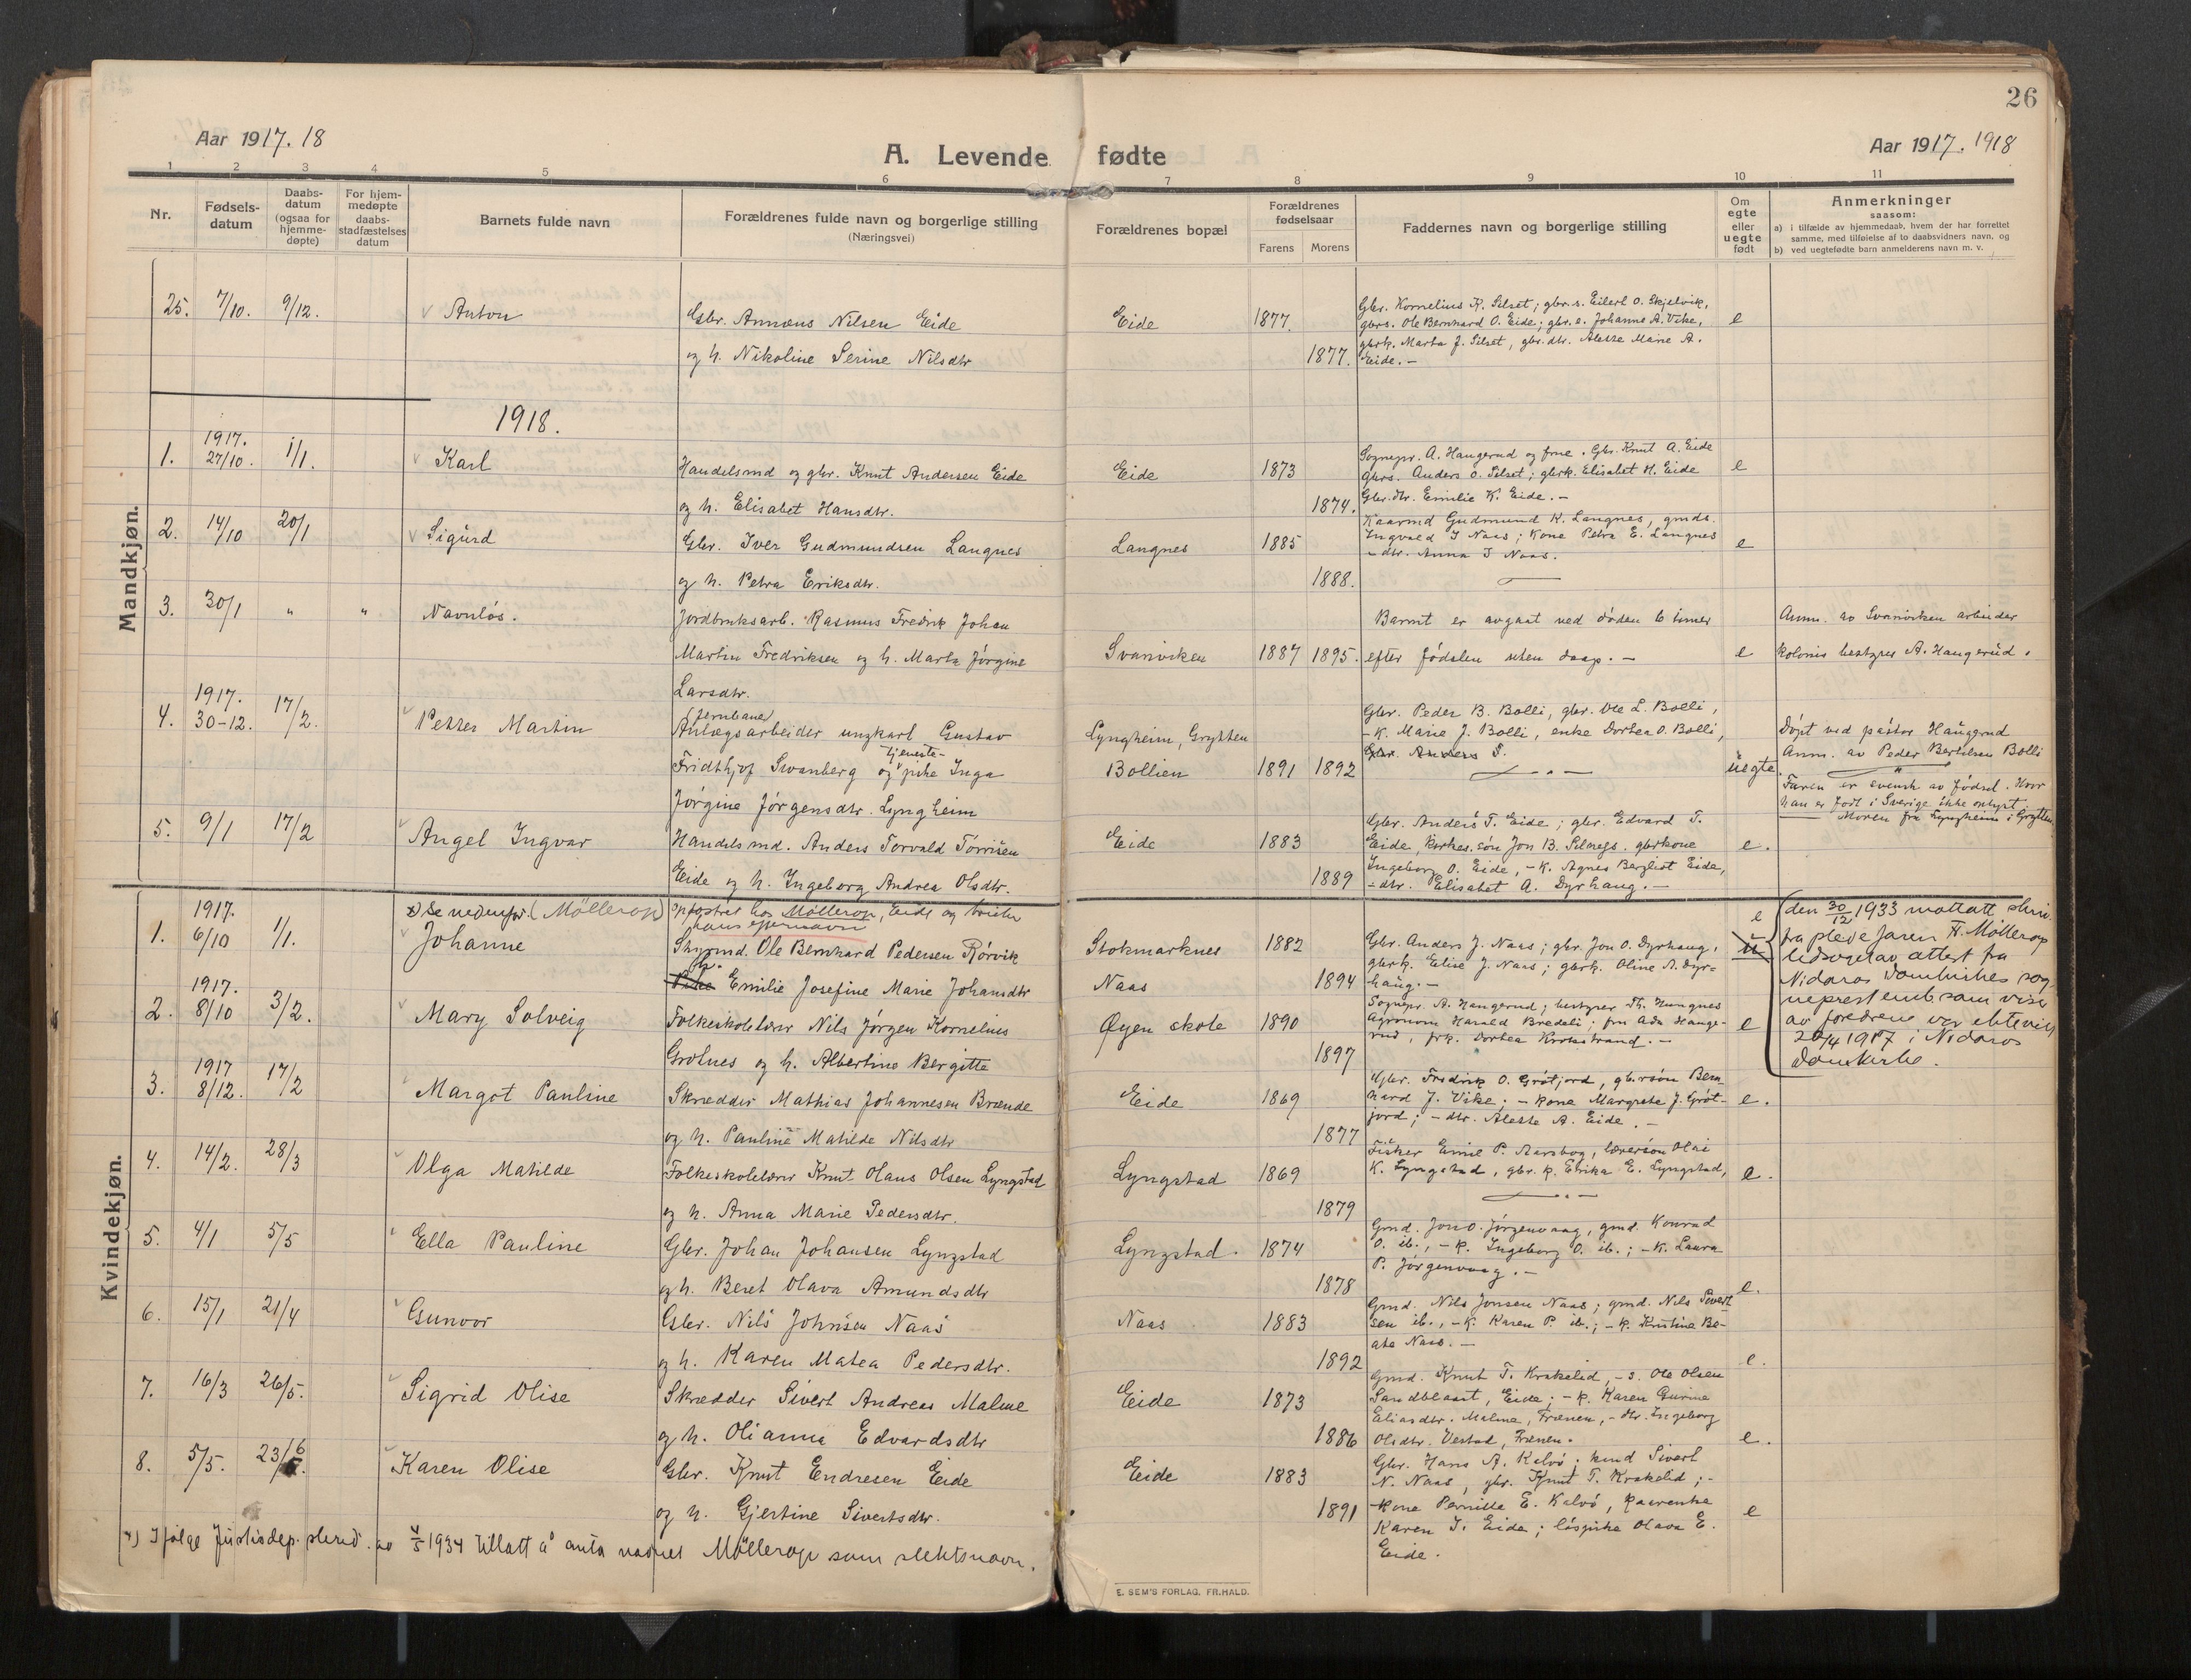 26
Aar 1917. 18
A. Levende fødte
Aar 1917. 1918
1 2 3 4 5 6 7 8 9 10 11
Nr.
Fødsels-
datum
Daabs-
datum
(ogsaa for
hjemme-
døpte)
For hjem-
medøpte
daabs-
stadfæstelses
datum
Barnets fulde navn
Forældrenes fulde navn og borgerlige stilling
(Næringsvei)
Forældrenes bopæl
Forældrenes
fødselsaar
Farens
Morens
Faddernes navn og borgerlige stilling
Om
egte
eller
uegte
født
Anmerkninger
saasom:
a) i tilfælde av hjemmedaab, hvem der har forrettet
samme, med tilføielse af to daabsvidners navn, og
b) ved uegtefødte barn anmelderens navn m. v.
Mandkjøn.
25. 7/10. 9/12. Anton
Gbr. Annæus Nilsen Eide
og h. Nikoline Serine Nilsdtr
Eide 1877. 1877.
Gbr. Kornelius K. Silset; gbr.s. Eilert O. Skjelvik,
gbrs. Ole Bernhard O. Eide; gbr.e. Johanne A. Vike,
gbrk. Marta J. Silset, gbr.dtr. Alette Marie A.
Eide. -
e
1918.
1. 1917. 27/10. 1/1. Karl
Handelsmd og gbr. Knut Andersen Eide
og h. Elisabet Hansdtr.
Eide 1873 1874.
Sognepr. A. Haugerud og frue. Gbr. Knut A. Eide
gbrs. Anders O. Silset; gbrk. Elisabet H. Eide
Gbr.dtr. Emilie K. Eide. -
e
2. 14/10 20/1 Sigurd
Gbr. Iver Gudmundsen Langnes
og h. Petra Eriksdtr.
Langnes 1885 1888.
Kaarmd Gudmund K. Langnes, gmds.
Ingvald I Naas; Kone Petra E. Langnes
- dtr. Anna I Naas.
e
3. 30/1 " " Navnløs.
Jordbruksarb. Rasmus Fredrik Johan
Martin Fredriksen og h. Marta Jørgine
Larsdtr.
Svanviken 1887 1895.
Barnet er avgaat ved døden 6 timer
efter fødslen uten daap. -
e
Anm. av Svanviken arbeider
kolonis bestyrer A. Haugerud.
4. 1917. 30-12. 17/2. Petter Martin
(Jernbane)
Anlægsarbeider ungkarl Gustav
Fridthjof Svanberg og tjeneste-
pike Inga
Jørgine Jørgensdtr. Lyngheim
Lyngheim, Grytten
Bollien 1891 1892
Gbr. Peder B. Bolli, gbr. Ole L. Bolli,
- K. Marie J. Bolli, enke Dortea O. Bolli,
Gbr. Anders T.
uegte
Døpt ved pastor Haugerud
Anm. av Peder Bertelsen Bolli
Faren er svensk av fødsel. Hvor
han er født i Sverige ikke oplyst.
Moren fra Lyngheim i Grytten
5. 9/1 17/2 Angel Ingvar
Handelsmd. Anders Torvald Torrisen
Eide og h. Ingeborg Andrea Olsdtr.
Eide 1883 1889
Gbr. Anders T. Eide; gbr. Edvard T.
Eide, kirkes.søn Jon B. Silnes. gbrkone
Ingeborg O. Eide, - K. Agnes Bergliot Eide,
- dtr. Elisabet A. Dyrhaug. -
e.
Kvindekjøn.
x) Se nedenfor (Møllerop)
opfostret hos Møllerop, Eide og bruker
hans efternavn
1. 1917. 6/10 1/1. Johanne
Skyomd. Ole Bernhard Pedersen Rørvik
h.
Pike Emilie Josefine Marie Johansdtr
Stokmarknes 1882
Naas 1894
Gbr. Anders J. Naas; gbr. Jon O. Dyrhaug,
gbrk. Elise J. Naas; gbrk. Oline A. Dyr-
haug. -
e
u
den 30/12 1933 mottatt skriv
fra pleiefaren H. Møllerop
ledsaget av attest fra
Nidaros Domkirkes sog
neprestemb. som viser
av foreldrene var ektevigd
20/4 1917 i Nidaros
Domkirke.
2. 1917. 8/10 3/2. Mary Solveig
Folkeskolelærer Nils Jørgen Kornelius
Grolnes og h. Albertine Bergitte
Øyen skole 1890 1897
Sognepr. A. Haugerud; bestyrer Th. Hungnes
Agronom Harald Bredeli; fru Ada Hauge-
rud, frk. Dortea Krokstrand. -
e
3. 1917 8/12. 17/2 Margot Pauline
Skrædder Mathias Johannesen Brænde
og h. Pauline Matilde Nilsdtr
Eide 1869 1877
Gbr. Fredrik O. Grøtjord, gbrsøn Bern
hard J. Vike; - kone Margrete J. Grøt-
jord; - dtr. Alette A. Eide. -
e.
4. 14/2. 28/3 Olga Matilde
Folkeskolelærer Knut Olaus Olsen Lyngstad
og h. Anna Marie Pedersdtr.
Lyngstad 1869 1879
Fisker Emil P. Aarsbog, lærersøn Olai
K. Lyngstad, gbr. k. Erika E. Lyngstad,
e.
5. 4/1 5/5 Ella Pauline
Gbr. Johan Johansen Lyngstad
og h. Beret Olava Amundsdtr
Lyngstad. 1874 1878
Gmd. Jon O. Jørgenvaag, gmd. Konrad
O. ib., - k. Ingeborg O. ib.; - K. Laura
P. Jørgenvaag. -
e.
6. 15/1 21/4 Gunvor
Gbr. Nils Johnsen Naas
og h. Karen Matea Pedersdtr.
Naas 1883 1892
Gmd. Nils Jonsen Naas; gmd. Nils Sivert
sen ib., - K. Karen P. ib.; - k. Kristine Be-
ate Naas. -
e.
7. 16/3 26/5. Sigrid Olise
Skrædder Sivert Andreas Malme
og h. Olianna Edvardsdtr
Eide 1873 1886
Gmd. Knut T. Krakelid, - s. Ole Olsen
Sandblaast, Eide; - k. Karen Gurine
Eliasdtr. Malme, Frænen, - dtr. Ingeborg
Olsdtr. Vestad, Frænen.
e.
8. 5/5. 23/6. Karen Olise
Gbr. Knut Endresen Eide
og h. Gjertine Sivertsdtr.
Eide 1883 1891
Gbr. Hans A. Kalvø; kmd Sivert
N. Naas, gbr. Knut T. Krakelid; -
- kone Pernille E. Kalvø, kaarenke
Karen I. Eide; løspike Olava E.
Eide.
e
x) Ifølge Justisdep. skriv. av 4/5 1934 tillatt å anta navnet Møllerop som slektsnavn.
E. SEM'S FORLAG, FR.HALD.